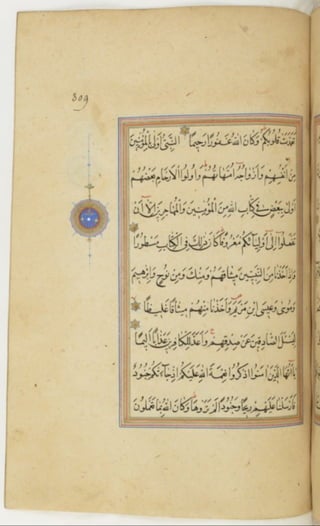 309
تَعَمَّدَتْ قُلُوبُكُمْ وَكَانَ اللهُ غَفُورًا رَحِيمًا النَّبِيُّ أَوْلَى بِالْمُؤْمِنِينَ
مِنْ أَنْفُسِهِمْ وَأَزْوَاجُهُ أُمَّهَاتُهُمْ وَأُولُوا الْأَرْحَامِ بَعْضُهُمْ
أَوْلَى بِبَعْضٍ فِي كِتَابِ اللهِ مِنَ الْمُؤْمِنِينَ وَالْمُهَاجِرِينَ إِلَّا أَنْ
تَفْعَلُوا إِلَى أَوْلِيَائِكُمْ مَعْرُوفًا كَانَ ذَلِكَ فِي الْكِتَابِ مَسْطُورًا
وَإِذْ أَخَذْنَا مِنَ النَّبِيِّينَ مِيثَاقَهُمْ وَمِنْكَ وَمِنْ نُوحٍ وَإِبْرَاهِيمَ
وَمُوسَى وَعِيسَى ابْنِ مَرْيَمَ وَأَخَذْنَا مِنْهُمْ مِيثَاقًا غَلِيظًا
لِيَسْئَلَ الصَّادِقِينَ عَنْ صِدْقِهِمْ وَأَعَدَّ لِلْكَافِرِينَ عَذَابًا أَلِيمًا
يَا أَيُّهَا الَّذِينَ آمَنُوا اذْكُرُوا نِعْمَةَ اللهِ عَلَيْكُمْ إِذْ جَاءَتْكُمْ جُنُودٌ
فَأَرْسَلْنَا عَلَيْهِمْ رِيحًا وَجُنُودًا لَمْ تَرَوْهَا وَكَانَ اللهُ بِمَا تَعْمَلُونَ